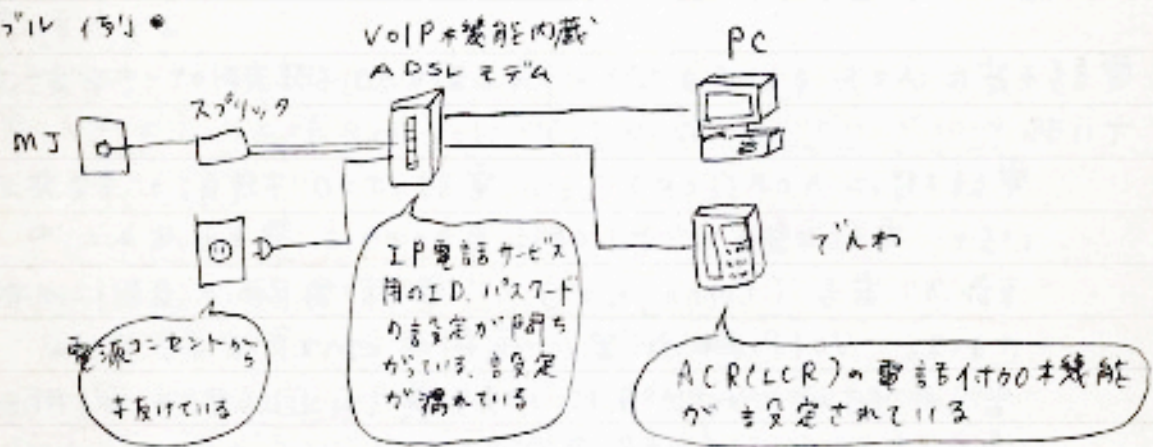 ブル (例) •
VoIP機能内蔵
ADSLモデム
PC
スプリッタ
MJ
でんわ
電源コンセントから
抜けている
IP電話サービス
用のID、パスワード
の設定が間ち
がっている、設定
が漏れている
ACR(LCR)の電話付加機能
が設定されている